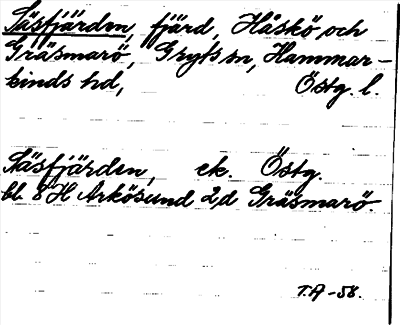 Näsfjärden, fjärd, Håskö och
Gräsmarö, Gryts sn, Hammar-
kinds hd, Östg. l.
Näsfjärden, ek. Östg.
bl. 8 H Arkösund 2d Gräsmarö
T.A -58.